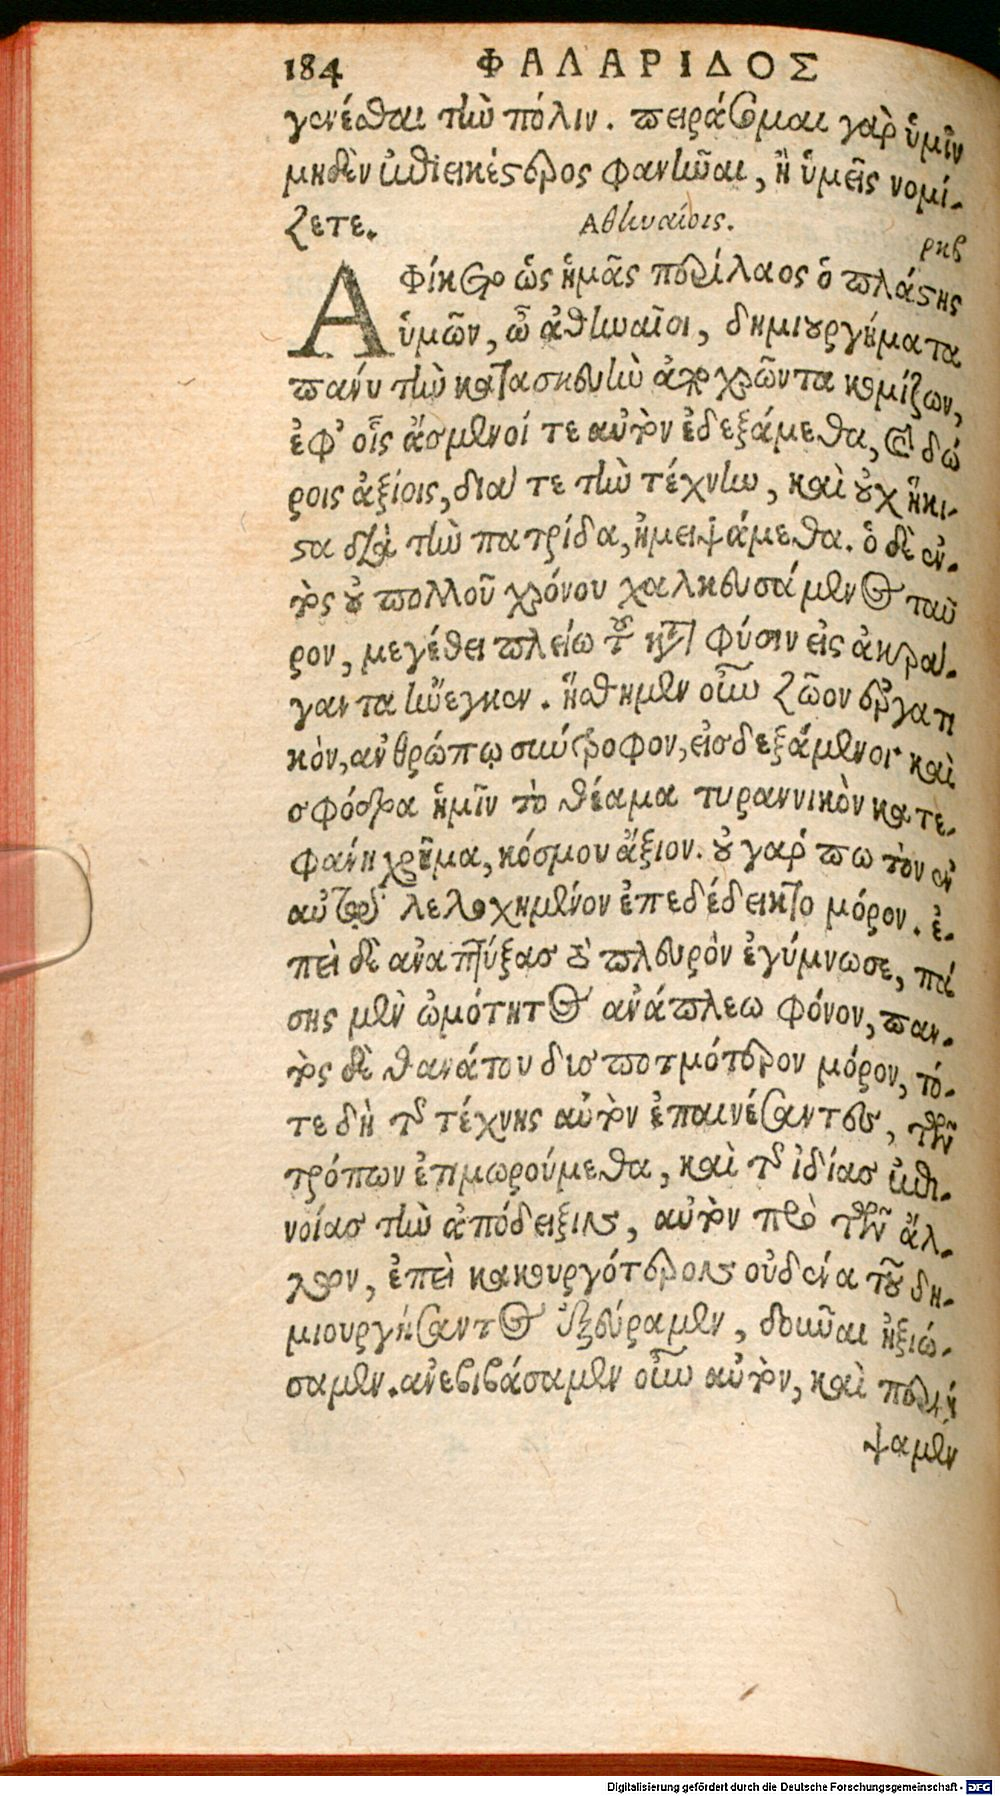 184 ΦΑΛΑΡΙΔΟΣ
γενέσθαι τὴν πόλιν. πειράσομαι γὰρ ὑμῖν
μηδὲν ἐπιεικέστερος φανῆναι, ἢ ὑμεῖς νομί-
ζετε. Ἀθηναίοις. ρκβ
ΑΦίκετο ὡς ἡμᾶς περίλαος ὁ πλάστης
ὑμῶν, ὦ ἀθηναῖοι, δημιουργήματα
πάνυ τὴν κατασκευὴν ἀποχρῶντα κομίζων,
ἐφ' οἷς ἄσμενοί τε αὐτὸν ἐδεξάμεθα, καὶ δώ
ροις ἀξίοις, διά τε τὴν τέχνην, καὶ οὐχ ἥκι-
στα διὰ τὴν πατρίδα, ἠμειψάμεθα. ὁ δὲ ἐν-
τὸς οὐ πολλοῦ χρόνου χαλκευσάμενος ταῦ
ρον, μεγέθει πλείω τοῦ κατὰ φύσιν εἰς ἀκρά-
γαντα ἤνεγκεν. ἥσθημεν οὖν ζῶον ἐργατι
κὸν, ἀνθρώπῳ σύντροφον, εἰσδεξάμενοι καὶ
σφόδρα ἡμῖν τὸ θέαμα τυραννικὸν κατε-
φάνη χρῆμα, κόσμου ἄξιον. οὐ γάρ πω τὸν ἐν
αὐτῷ λελοχημένον ἐπεδέδεικτο μόρον. ἐ-
πεὶ δὲ ἀναπτύξας τὸ πλευρὸν ἐγύμνωσε, πά
σης μὲν ὠμότητος ἀνάπλεω φόνον, παν-
τὸς δὲ θανάτου δισποτμότερον μόρον, τό-
τε δὴ τῆς τέχνης αὐτὸν ἐπαινέσαντες, τῶν
τρόπων ἐτιμωρούμεθα, καὶ τῆς ἰδίας ἐπι-
νοίας τὴν ἀπόδειξιν, αὐτὸν πρὸ τῶν ἄλ-
λων, ἐπεὶ κακουργότερον οὐδένα τοῦ δη-
μιουργήσαντος ἐξεύραμεν, δοῦναι ἠξιώ-
σαμεν. ἀνεβιβάσαμεν οὖν αὐτὸν, καὶ περιή
ψαμεν